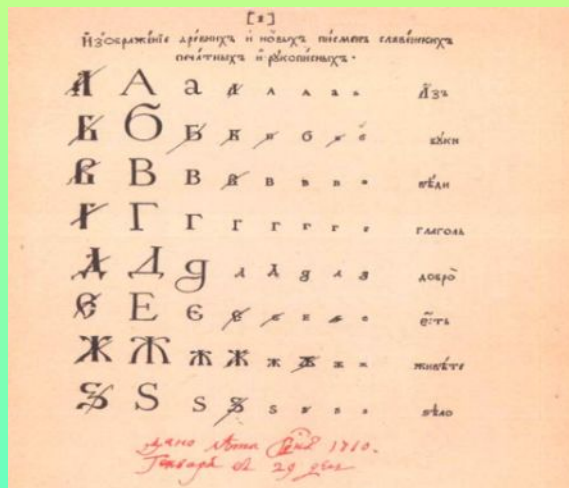 [1]
И҆зѡбраже́нїе дре́внихъ и҆ но́выхъ пи́сменъ славе́нскихъ
печа́тныхъ и҆ рꙋкопи́сныхъ.
А А а а а а а а А҆́зъ
Б Б Б Б Б б Б б бꙋ́ки
В В В В В В В В вѣ́ди
Г Г Г Г Г Г Г Г глаго́ль
Д Д д д д д д д добро̀
Є Е Є Є Є Є Є Є є҆́сть
Ж Ж Ж Ж ж Ж ж ж живѣ́те
Ѕ Ѕ Ѕ Ѕ ѕ ѕ ѕ ѕ ѕѣлѡ̀
дано лѣта 1710.
Генваря въ 29 день